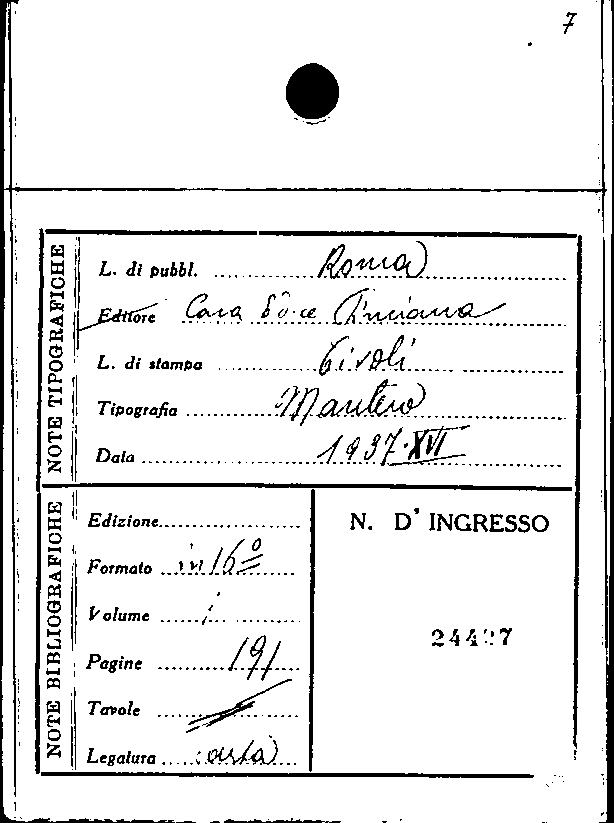 7
NOTE TIPOGRAFICHE
L. di pubbl. Roma
Editore Casa Pinciana
L. di stampa Tivoli
Tipografia Mantero
Data 1937·XVI
NOTE BIBLIOGRAFICHE
Edizione
Formato in 16º
Volume i
Pagine 191
Tavole
Legatura carta
N. D' INGRESSO